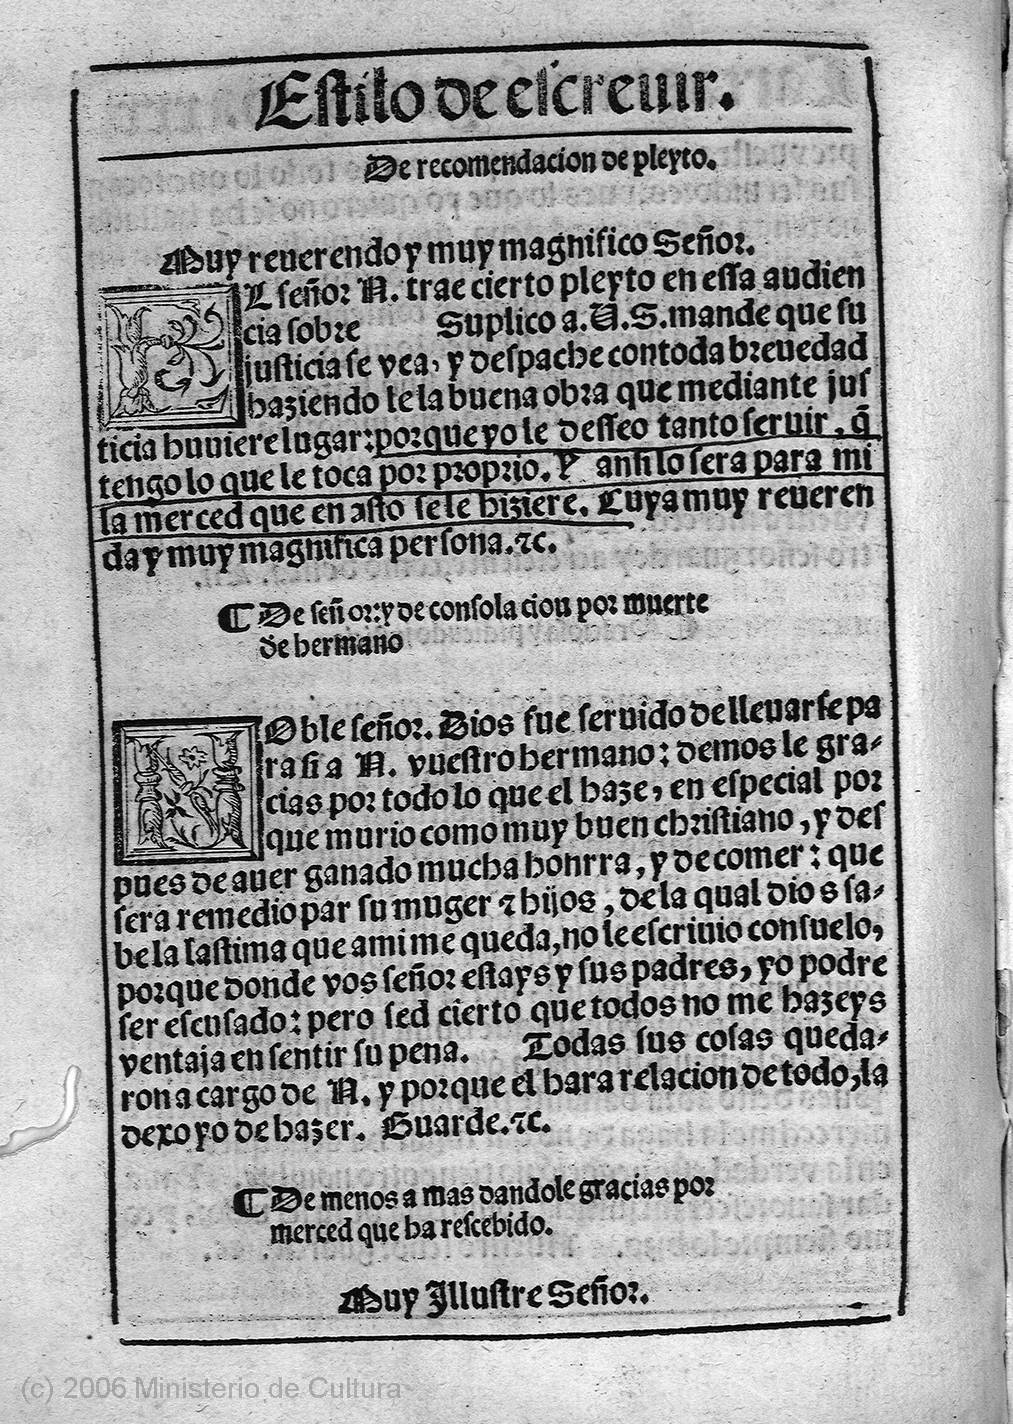 Estilo de escreuir.
De recomendacion de pleyto.
Muy reuerendo y muy magnifico Señor.
EL señor N. trae cierto pleyto en essa audien
cia sobre Suplico a.U.S.mande que su
justicia se vea, y despache con toda breuedad
haziendo le la buena obra que mediante jus
ticia huuiere lugar: porque yo le desseo tanto seruir, q̃
tengo lo que le toca por proprio. Y ansi lo sera para mi
la merced que en esto se le hiziere. Cuya muy reueren
da y muy magnifica persona.⁊c.
¶ De señor: y de consolacion por muerte
de hermano
NOble señor. Dios fue seruido de lleuarse pa
ra si a N. vuestro hermano: demos le gra-
cias por todo lo que el haze, en especial por
que murio como muy buen christiano, y des
pues de auer ganado mucha honrra, y de comer: que
sera remedio par su muger ⁊ hijos, de la qual dios sa-
be la lastima que a mi me queda, no le escriuio consuelo,
porque donde vos señor estays y sus padres, yo podre
ser escusado: pero sed cierto que todos no me hazeys
ventaja en sentir su pena. Todas sus cosas queda-
ron a cargo de N. y porque el hara relacion de todo, la
dexo yo de hazer. Guarde.⁊c.
¶ De menos a mas dandole gracias por
merced que ha rescebido.
Muy Illustre Señor.
(c) 2006 Ministerio de Cultura